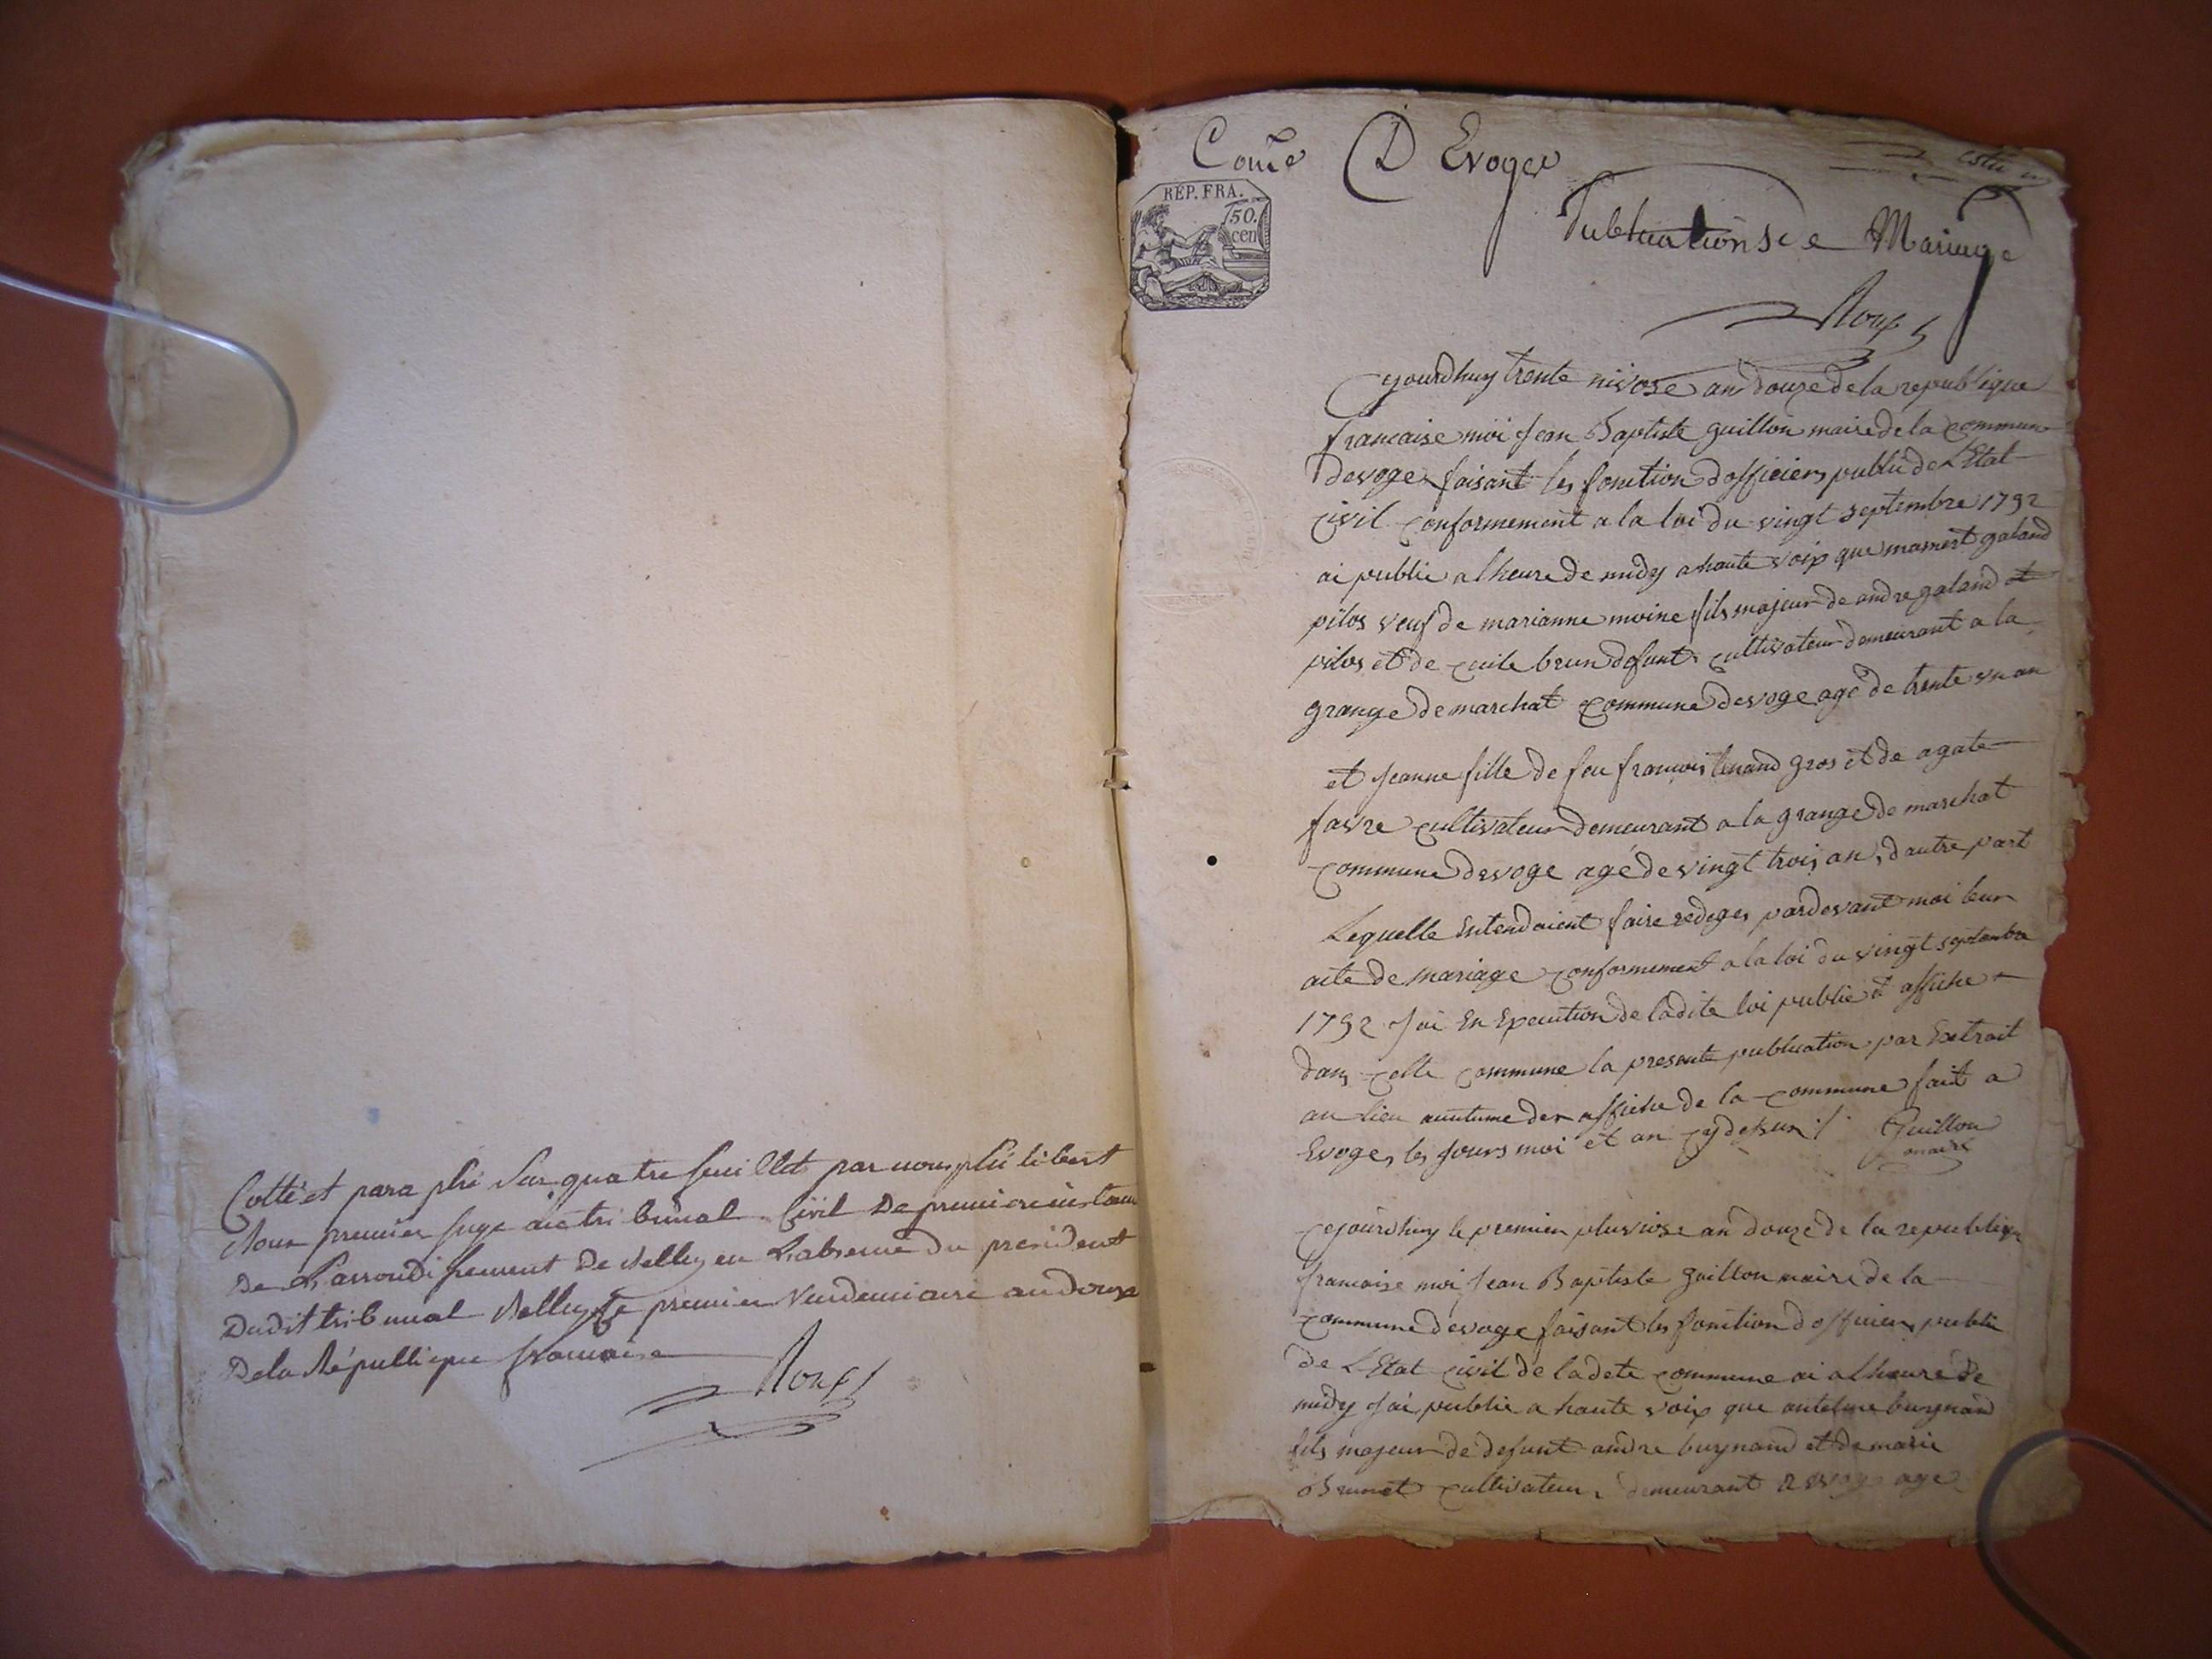 Cotté et paraphé Sur quatre feuillet par nous philibert
Roux premier juge au tribunal Civil De premiere instance
De L'arrondissement De Belley en L'absence du president
Dudit tribunal Belley le premier Vendemiaire an douze
De la République francaise
Roux
Com̃e D Evoges
REP. FRA.
50.
cen
Publications de Mariage
Roux
Cejourdhuy trente nivose an douze de la republique
francaise moi Jean Baptiste guillon maire de la commun
devoge faisant les fonction dofficiers public de L'Etat
civil conformement a la loi du vingt septembre 1792
ai publié a lheure de midy a haute voix que mamert galand
pilos veuf de marianne moine fils majeur de andre galand et
pilos et de cecile brun defunt cultivateur demeurant a la
grange de marchat commune devoge agé de trente un an
et Jeanne fille de feu francois gros et de agate
favre cultivateur demeurant a la grange de marchat
commune devoge agé de vingt trois an, dautre part
Lequelle Entendaient faire rediges pardevant moi leur
acte de mariage conformement a la loi du vingt septembre
1792 Jai En Execution de ladite loi publié et affiche
dans cette commune la presente publication par Extrait
au lieu acutume des affiche de la commune fait a
Evoges les Jours moi et an cydessus Guillon
maire
cejourdhuy le premier pluviose an douze de la republique
francaise moi Jean Baptiste guillon maire de la
commune devoge faisant les fonction dofficiers public
de L'Etat civil de ladete commune ai a lheure de
midy Jai publié a haute voix que antelme buynand
fils majeur de defunt andre buynand et de marie
Brunet cultivateur demeurant a evoge age